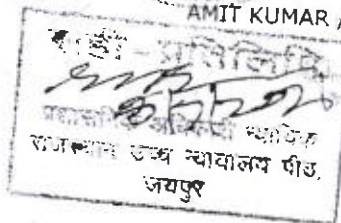 AMIT KUMAR
प्रतिलिपि
प्रशासनिक अधिकारी न्यायिक
राजस्थान उच्च न्यायालय पीठ,
जयपुर